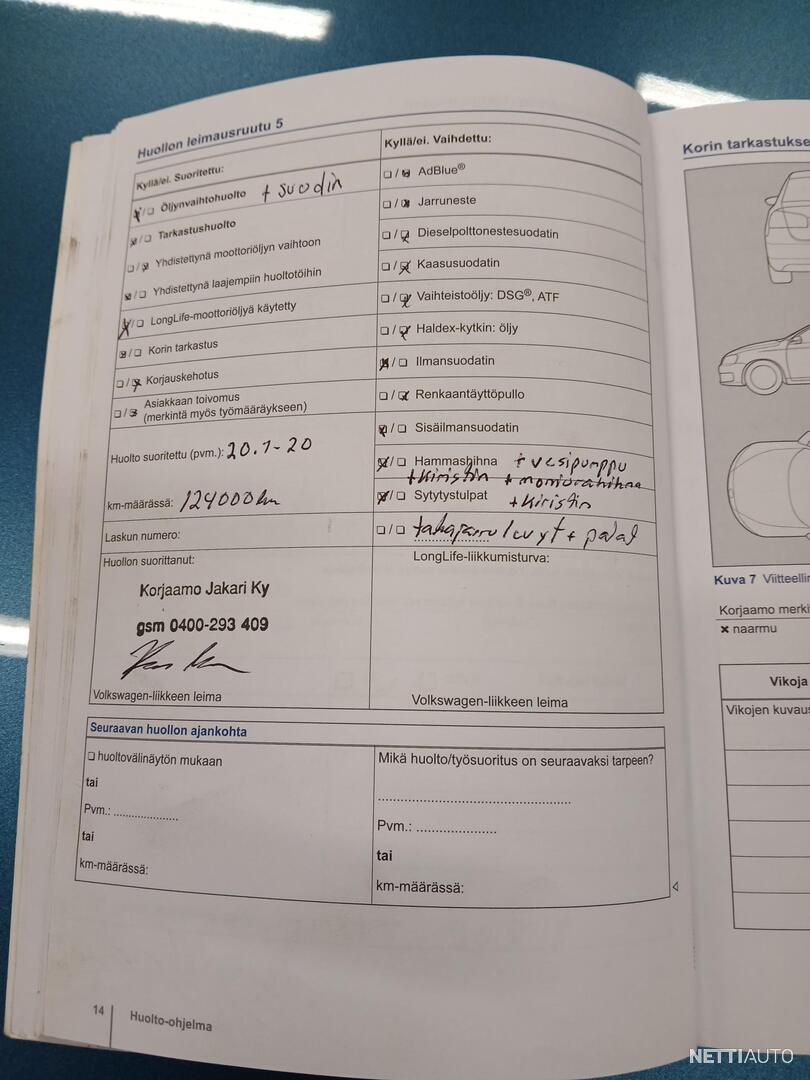 Huollon leimausruutu 5
Kyllä/ei. Suoritettu:
☒/☐ Öljynvaihtohuolto + suodin
☒/☐ Tarkastushuolto
☐/☒ Yhdistettynä moottoriöljyn vaihtoon
☒/☐ Yhdistettynä laajempiin huoltotöihin
☒/☐ LongLife-moottoriöljyä käytetty
☒/☐ Korin tarkastus
☐/☒ Korjauskehotus
☐/☒ Asiakkaan toivomus
(merkintä myös työmääräykseen)
Huolto suoritettu (pvm.): 20.1-20
km-määrässä: 124000km
Laskun numero:
Huollon suorittanut:
Korjaamo Jakari Ky
gsm 0400-293 409
Volkswagen-liikkeen leima
Kyllä/ei. Vaihdettu:
☐/☒ AdBlue®
☐/☒ Jarruneste
☐/☒ Dieselpolttonestesuodatin
☐/☒ Kaasusuodatin
☐/☒ Vaihteistoöljy: DSG®, ATF
☐/☒ Haldex-kytkin: öljy
☒/☐ Ilmansuodatin
☐/☒ Renkaantäyttöpullo
☒/☐ Sisäilmansuodatin
☒/☐ Hammashihna + vesipumppu
+ kiristin + moniurahihna
☒/☐ Sytytystulpat + kiristin
☐/☐ takajarru levyt + palat
LongLife-liikkumisturva:
Volkswagen-liikkeen leima
Seuraavan huollon ajankohta
☐ huoltovälinäytön mukaan
tai
Pvm.: ....................
tai
km-määrässä:
Mikä huolto/työsuoritus on seuraavaksi tarpeen?
Pvm.: ....................
tai
km-määrässä:
14 Huolto-ohjelma
Korin tarkastukse
Kuva 7 Viitteellin
Korjaamo merki
✖ naarmu
Vikoja
Vikojen kuvaus
NETTIAUTO